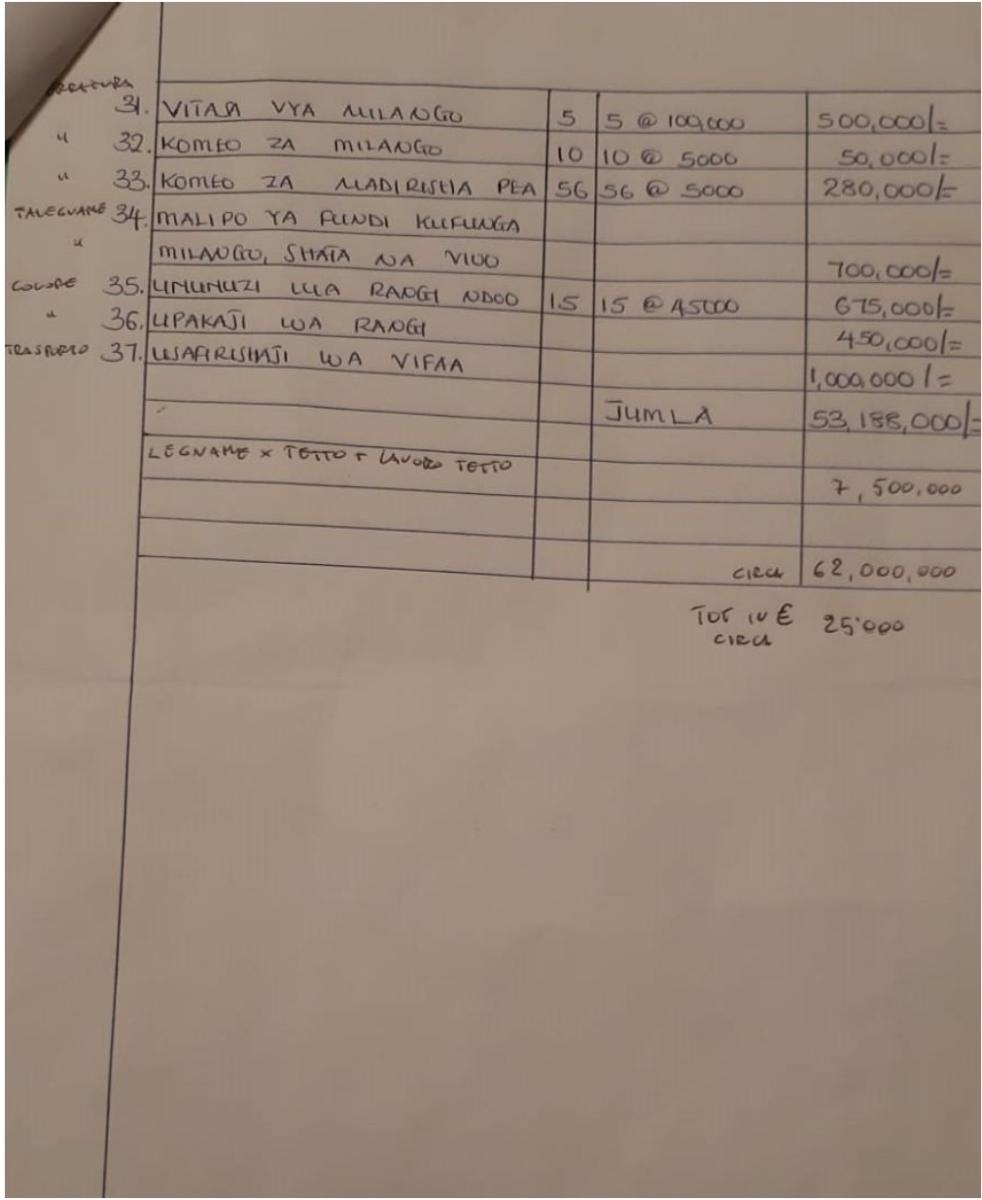 31. VITASA VYA MILANGO 5 5 @ 100,000 500,000/=
" 32. KOMEO ZA MILANGO 10 10 @ 5000 50,000/=
" 33. KOMEO ZA MADIRISHA PEA 56 56 @ 5000 280,000/=
34. MALIPO YA FUNDI KUFUNGA
" MILANGO, SHATA NA VIOO 700,000/=
COLORE 35. UNUNUZI WA RANGI NDOO 15 15 @ 45000 675,000/=
" 36. UPAKAJI WA RANGI 450,000/=
TRASPORTO 37. USAFIRISHAJI WA VIFAA 1,000,000/=
JUMLA 53,188,000/=
LEGNAME x TETTO + LAVORO TETTO 7,500,000
CIRCA 62,000,000
TOT IN € 25'000
CIRCA